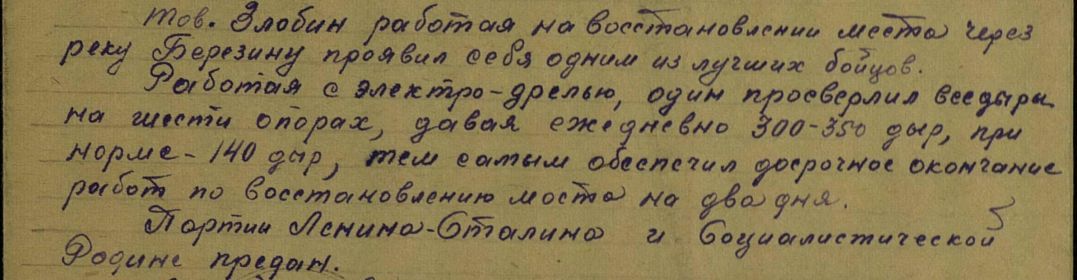 тов. Злобин работая на восстановлении места через
реку Березину проявил себя одним из лучших бойцов.
Работая с электро-дрелью, один просверлил все дыры
на шести опорах, давая ежедневно 300-350 дыр, при
норме - 140 дыр, тем самым обеспечил досрочное окончание
работ по восстановлению моста на два дня.
Партии Ленина-Сталина и Социалистической
Родине предан.